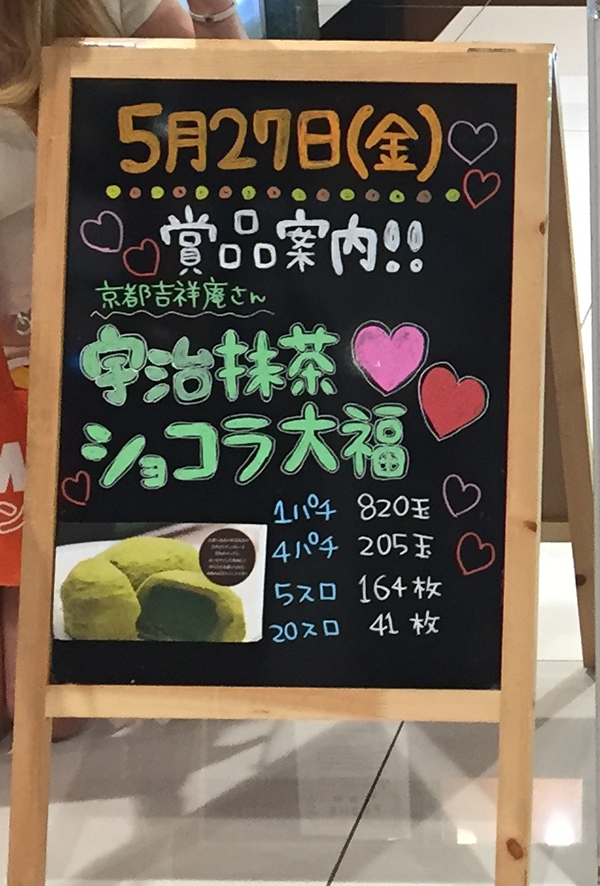 5月27日(金)
賞品案内!!
京都吉祥庵さん
宇治抹茶
ショコラ大福
1パチ 820玉
4パチ 205玉
5スロ 164枚
20スロ 41枚